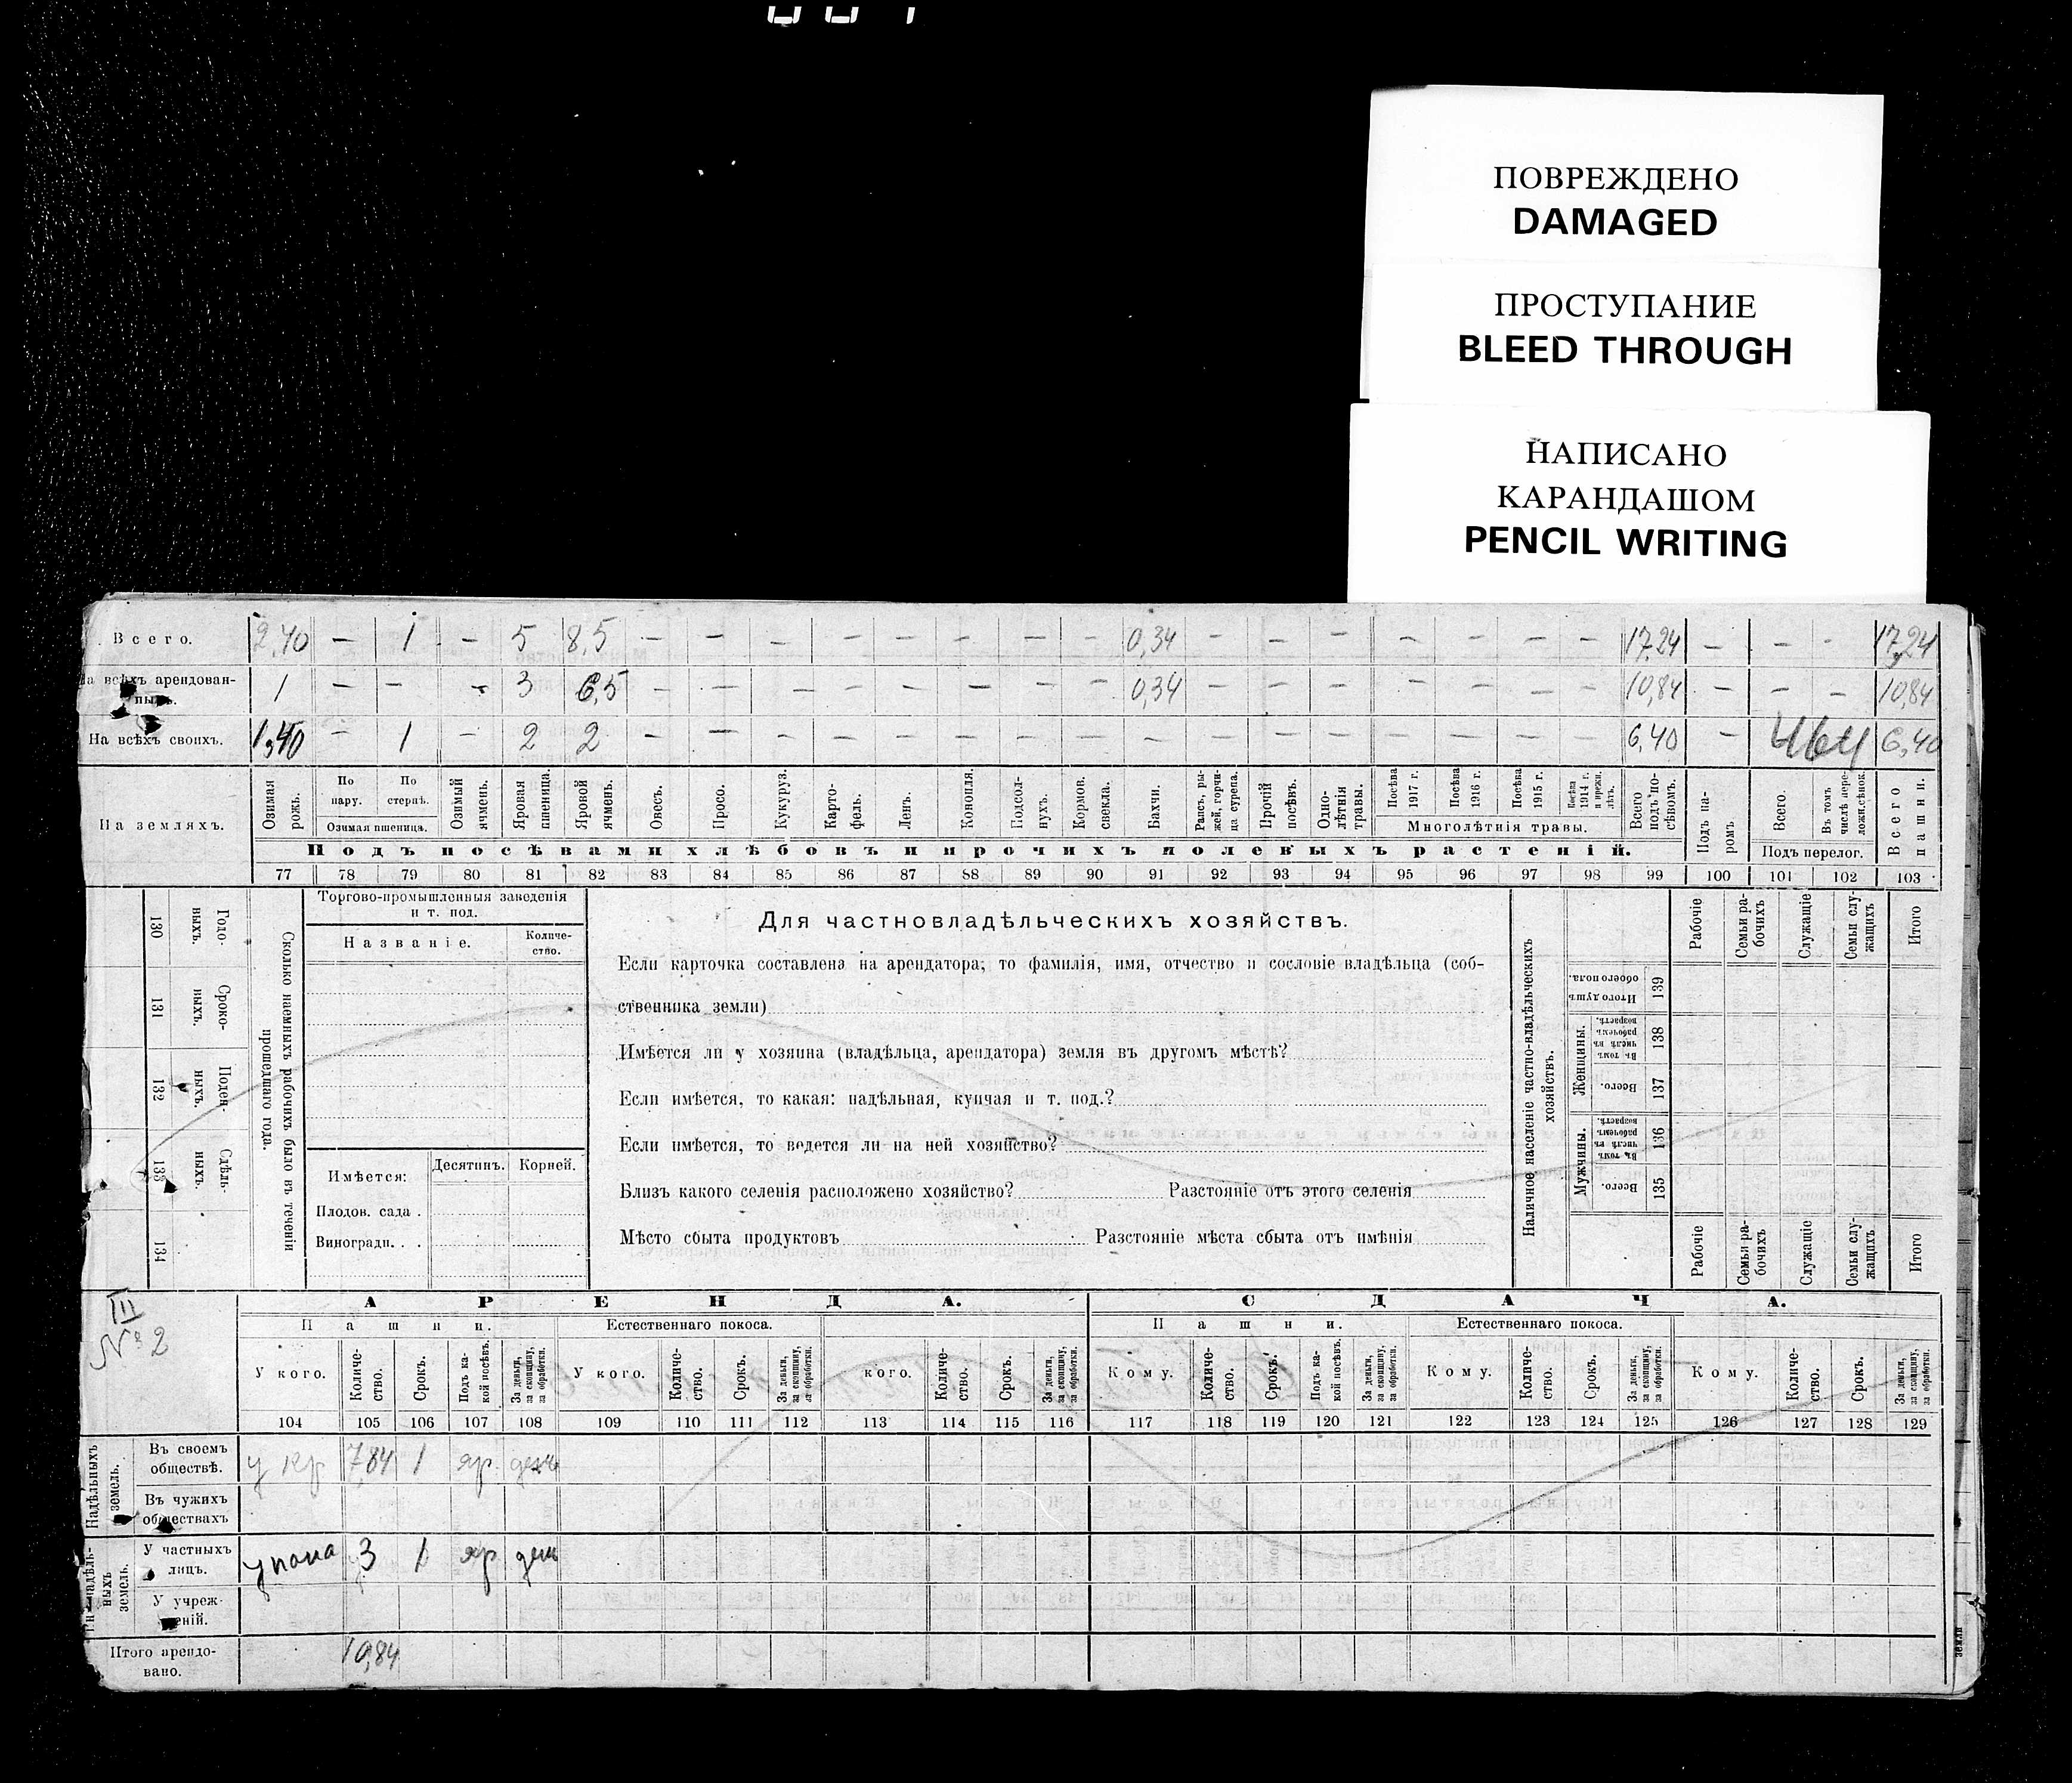 ПОВРЕЖДЕНО
DAMAGED
ПРОСТУПАНИЕ
BLEED THROUGH
НАПИСАНО
КАРАНДАШОМ
PENCIL WRITING
Всего. 2,40 — 1 — 5 8,5 — — — — — — — — 0,34 — — — — — — — 17,24 — — — 17,24
На всѣхъ арендованныхъ. 1 — — — 3 6,5 — — — — — — — — 0,34 — — — — — — — 10,84 — — — 10,84
На всѣхъ своихъ. 1,40 — 1 — 2 2 — — — — — — — — — — — — — — — — 6,40 — 464 6,40
На земляхъ.
Озимая рожь.
По пару.
По стернѣ.
Озимая пшеница.
Озимый ячмень.
Яровая пшеница.
Яровой ячмень.
Овесъ.
Просо.
Кукуруз.
Картофель.
Ленъ.
Конопля.
Подсолнухъ.
Кормов. свекла.
Бахчи.
Рапсъ, рыжей, горчица сурепа.
Прочій посѣвъ.
Однолѣтнія травы.
Посѣва 1917 г.
Посѣва 1916 г.
Посѣва 1915 г.
Посѣва 1914 г. и прежн. лѣтъ.
Многолѣтнія травы.
Всего подъ посѣвомъ.
Подъ паромъ
Всего.
Въ томъ числѣ перелож.сѣнок.
Подъ перелог.
Всего пашни.
Подъ посѣвами хлѣбовъ и прочихъ полевыхъ растеній.
77 78 79 80 81 82 83 84 85 86 87 88 89 90 91 92 93 94 95 96 97 98 99 100 101 102 103
130 Годовыхъ.
131 Срочныхъ.
132 Поденныхъ.
133 Сдѣльныхъ.
134
Сколько наемныхъ рабочихъ было въ теченіи прошедшаго года.
Торгово-промышленныя заведенія
и т. под.
Названіе.
Количество.
Имѣется:
Десятинъ.
Корней.
Плодов. сада .
Виноградн. . .
Для частновладѣльческихъ хозяйствъ.
Если карточка составлена на арендатора; то фамилія, имя, отчество и сословіе владѣльца (соб-
ственника земли)
Имѣется ли у хозяина (владѣльца, арендатора) земля въ другомъ мѣстѣ?
Если имѣется, то какая: надѣльная, купчая и т. под.?
Если имѣется, то ведется ли на ней хозяйство?
Близъ какого селенія расположено хозяйство? Разстояніе отъ этого селенія
Мѣсто сбыта продуктовъ Разстояніе мѣста сбыта отъ имѣнія
Наличное населеніе частно-владѣльческихъ хозяйствъ.
Рабочіе
Семьи рабочихъ
Служащіе
Семьи служащихъ
Итого
Итого душъ обоего пола. 139
Женщины.
Въ томъ числѣ въ рабочемъ возрастѣ. 138
Всего. 137
Мужчины.
Въ томъ числѣ въ рабочемъ возрастѣ. 136
Всего. 135
Рабочіе
Семьи рабочихъ
Служащіе
Семьи служащихъ
Итого
III
№ 2
АРЕНДА. СДАЧА.
Пашни. Естественнаго покоса. Пашни. Естественнаго покоса.
У кого. Количество. Срокъ. Подъ какой посѣвъ. За деньги, за скопщину, за обработки.
У кого. Количество. Срокъ. За деньги, за скопщину, за обработки.
кого. Количество. Срокъ. За деньги, за скопщину, за обработки.
Кому. Количество. Срокъ. Подъ какой посѣвъ. За деньги, за скопщину, за обработки.
Кому. Количество. Срокъ. За деньги, за скопщину, за обработки.
Кому. Количество. Срокъ. За деньги, за скопщину, за обработки.
104 105 106 107 108 109 110 111 112 113 114 115 116 117 118 119 120 121 122 123 124 125 126 127 128 129
Надѣльныхъ земель.
Въ своемъ обществѣ. у кр 7,84 1 яр.
Въ чужихъ обществахъ
земель.
У частныхъ лицъ. у пона 3 1 яр ден
У учрежденій.
Итого арендовано. 10,84
земли